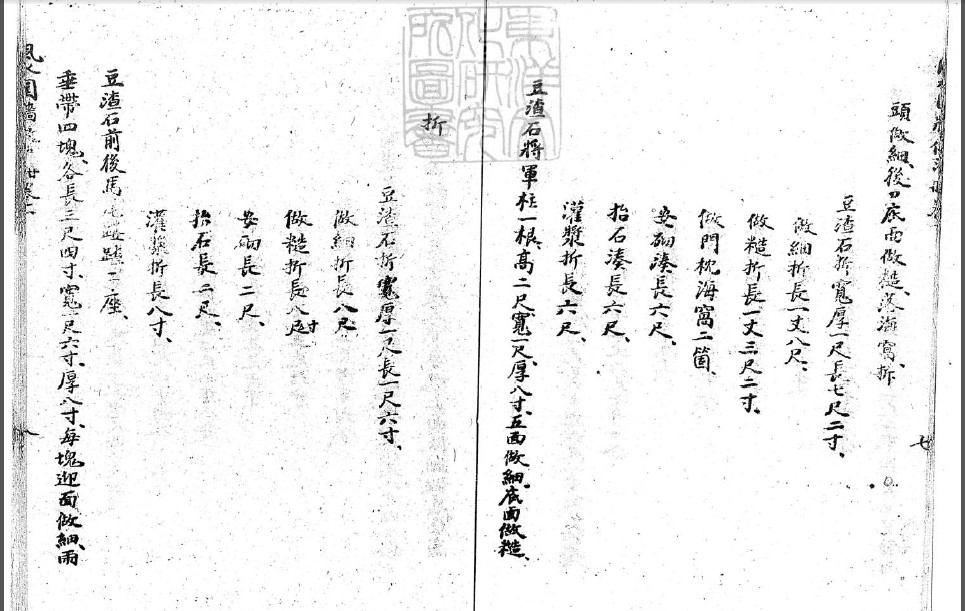 頭做細、後口底面做糙、落海窩、折
豆渣石折寬厚一尺長七尺二寸、
做細折長一丈八尺、
做糙折長一丈三尺二寸、
做門枕海窩二箇、
安砌湊長六尺、
抬石湊長六尺、
灌漿折長六尺、
豆渣石將軍柱一根、高二尺、寬一尺、厚八寸、五面做細、底面做糙、
折
豆渣石折寬厚一尺長一尺六寸、
做細折長八尺、
做糙折長八寸
安砌長二尺、
抬石長二尺、
灌漿折長八寸、
豆渣石前後馬尾礓䃰二座、
垂帶四塊、各長三尺四寸、寬一尺六寸、厚八寸、每塊迎面做細、兩
七
八
東洋文化研究所圖書